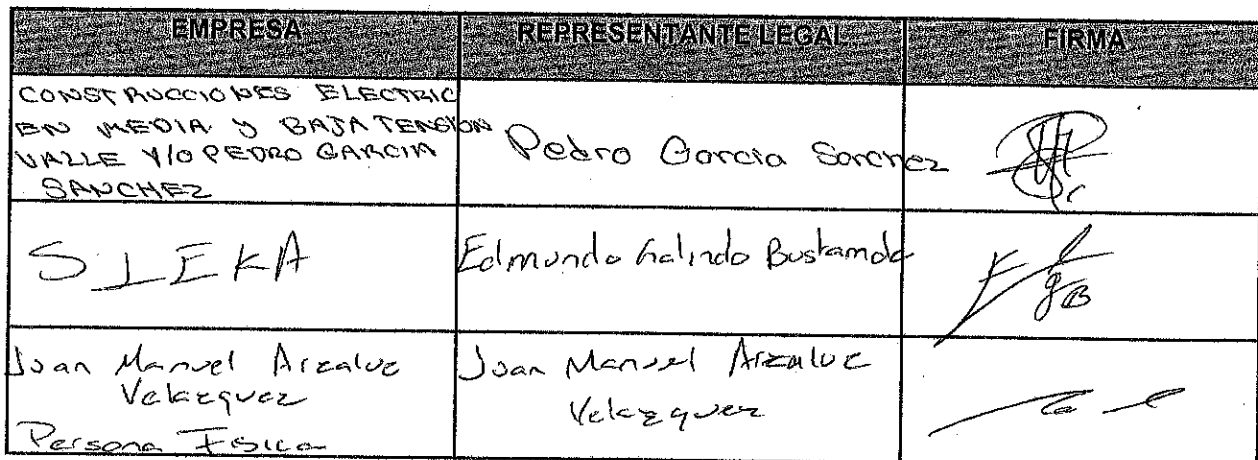 EMPRESA REPRESENTANTE LEGAL FIRMA
CONSTRUCCIONES ELECTRIC
EN MEDIA Y BAJA TENSION
VALLE Y/O PEDRO GARCIA
SANCHEZ
Pedro Garcia Sanchez
SIEKA
Edmundo Galindo Bustamante
Juan Manuel Arzaluz
Velazquez
Persona Fisica
Juan Manuel Arzaluz
Velazquez